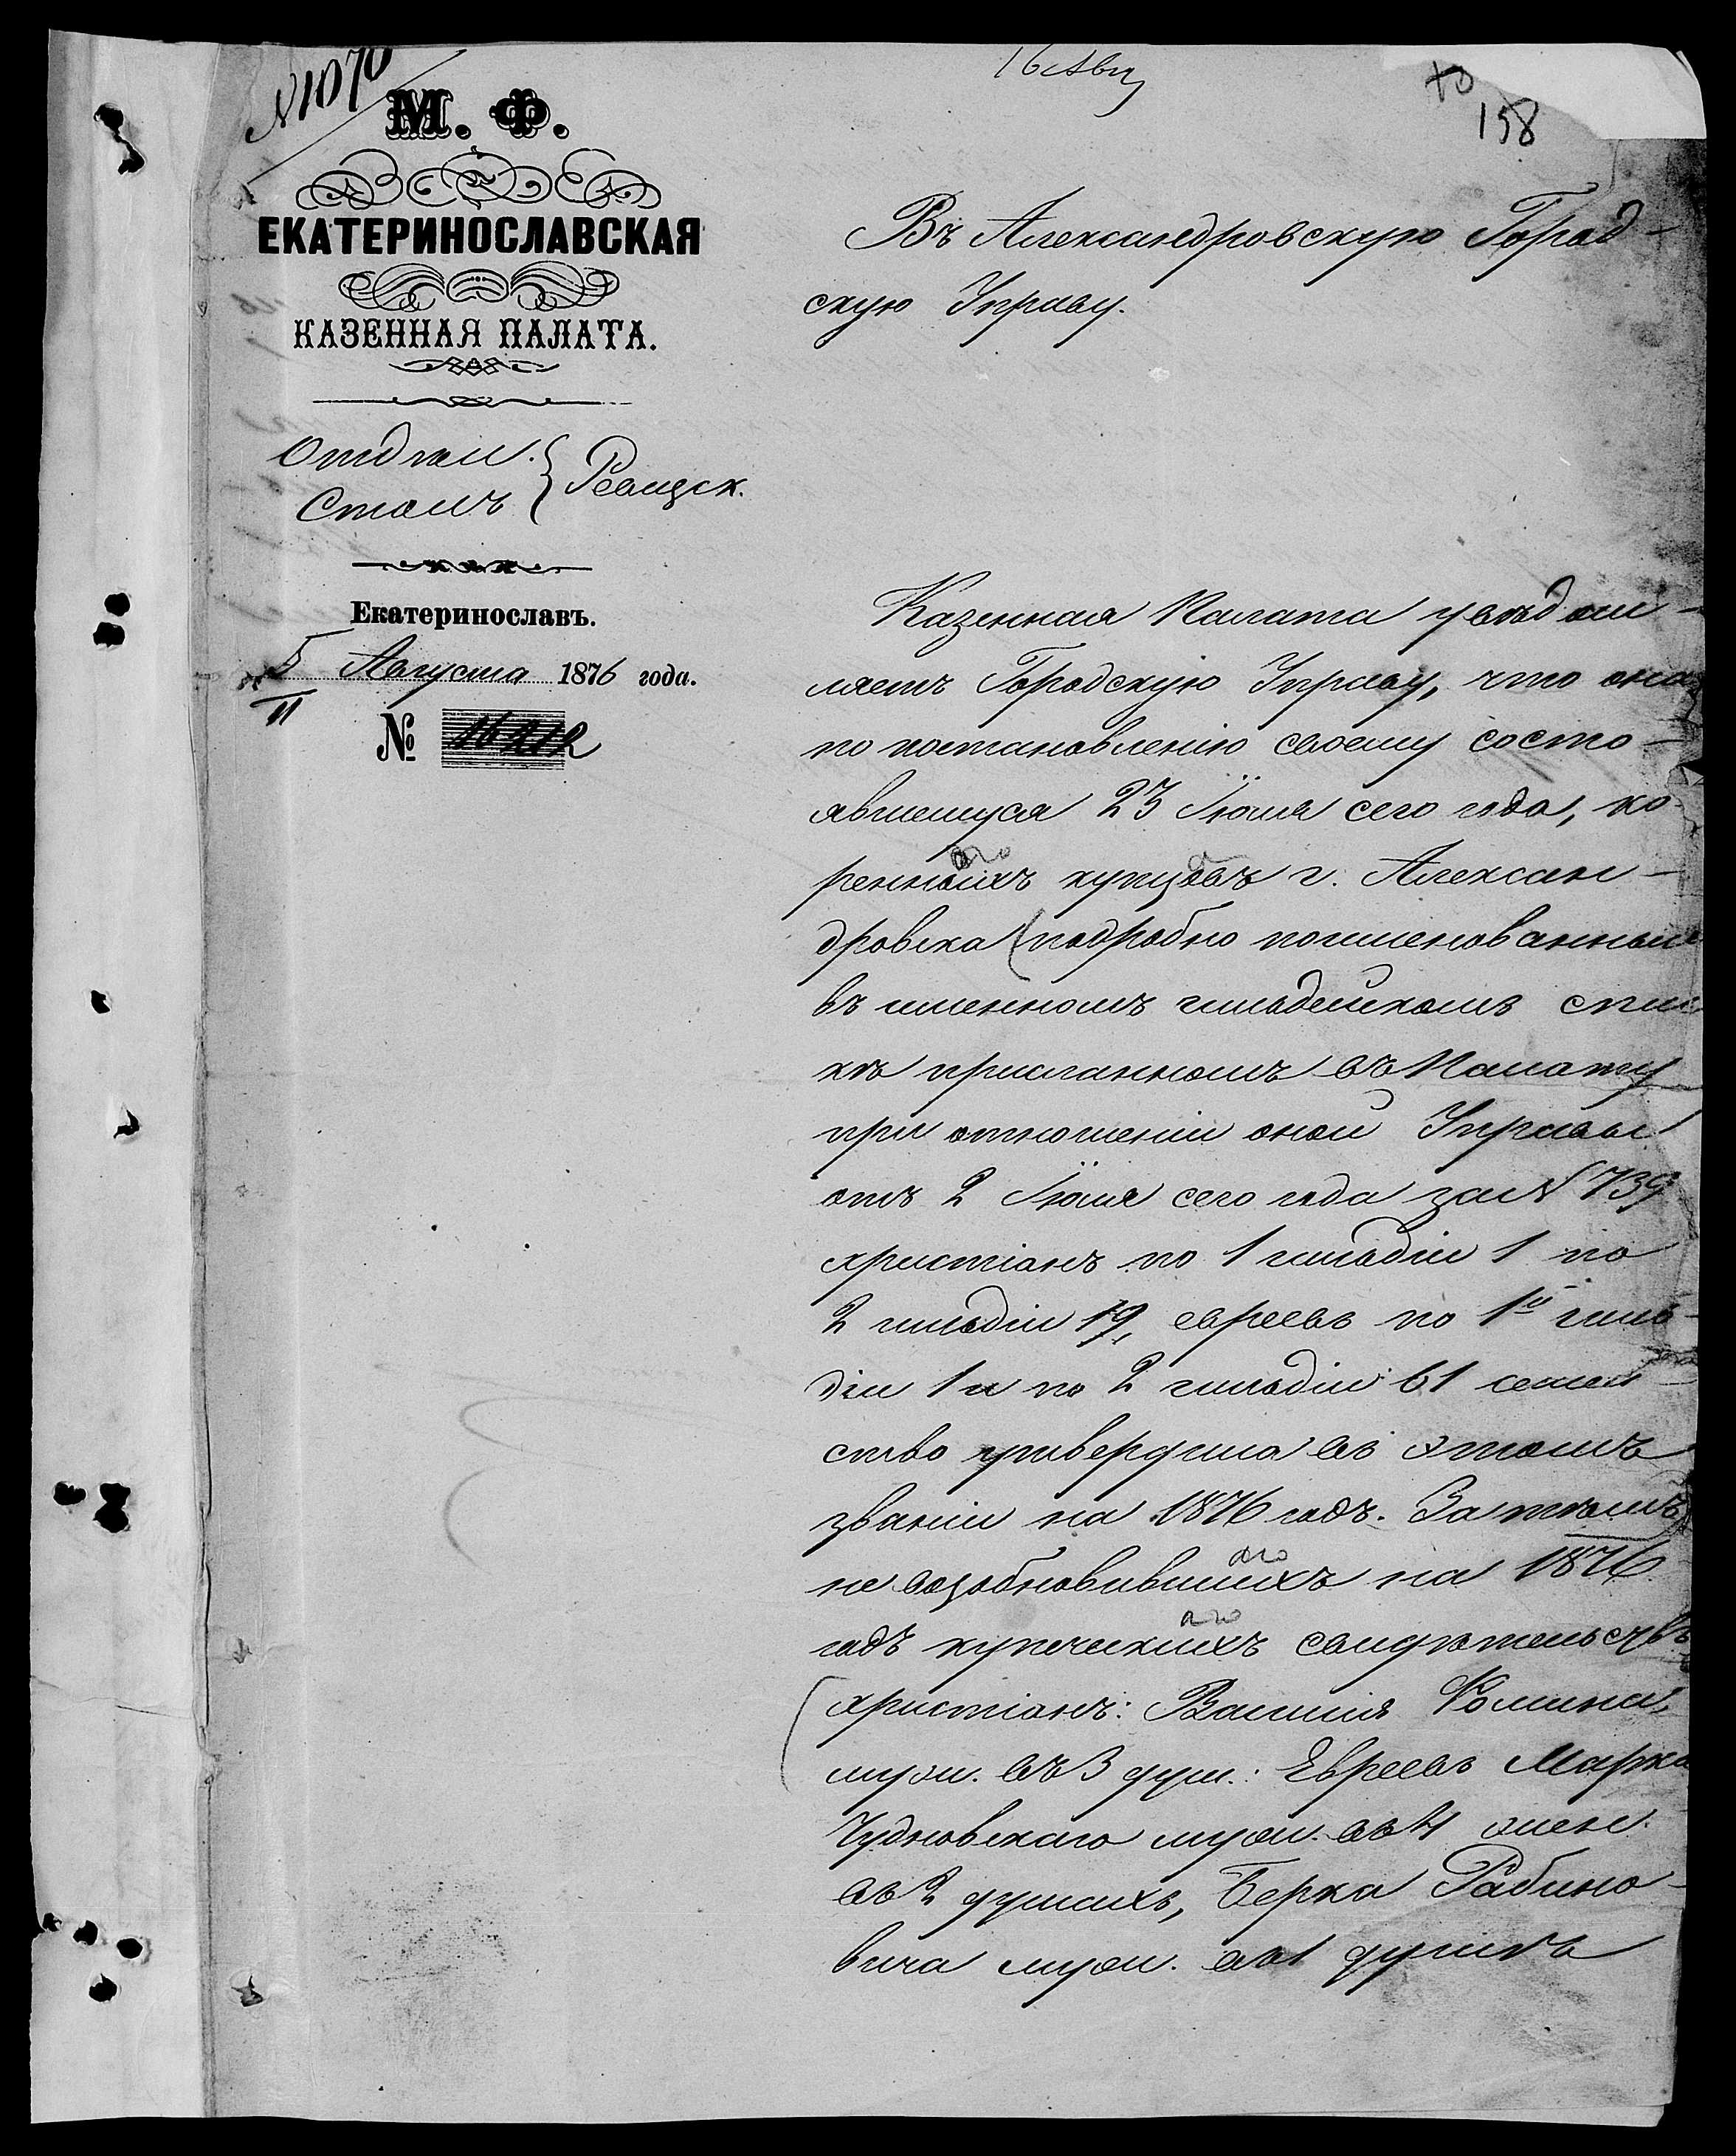 № 1070
16 Авг
70
158
М. Ф.
ЕКАТЕРИНОСЛАВСКАЯ
КАЗЕННАЯ ПАЛАТА.
Отдѣл.
Столъ
Ревизск.
Екатеринославъ.
5 Августа 1876 года.
11
№ 16212
Въ Александровскую Город-
скую Управу.
Казенная Палата увѣдом-
ляетъ Городскую Управу, что она
по постановленію своему состо-
явшемуся 23 Іюля сего года, ко-
ренныхъ купцовъ г. Алексан-
дровска (подробно поименованныхъ
въ именномъ гильдейскомъ спис
кѣ присланномъ въ Палату
при отношеніи оной Управы
отъ 2 Іюля сего года за № 739
христіанъ по 1 гильдіи 1 по
2 гильдіи 19, евреевъ по 1й гиль-
діи 1 и по 2 гильдіи 61 семей-
ство утвердила въ этомъ
званіи на 1876 годъ. Затѣмъ
аго
не возобновившихъ на 1876
аго
годъ купеческихъ свидѣтельствъ
христіанъ: Василія Фомина
муж. въ 3 душ.: Евреевъ Марка
Чудновскаго муж. въ 4 жен.
въ 2 душахъ, Берка Рабино-
вича муж. въ 1 душѣ